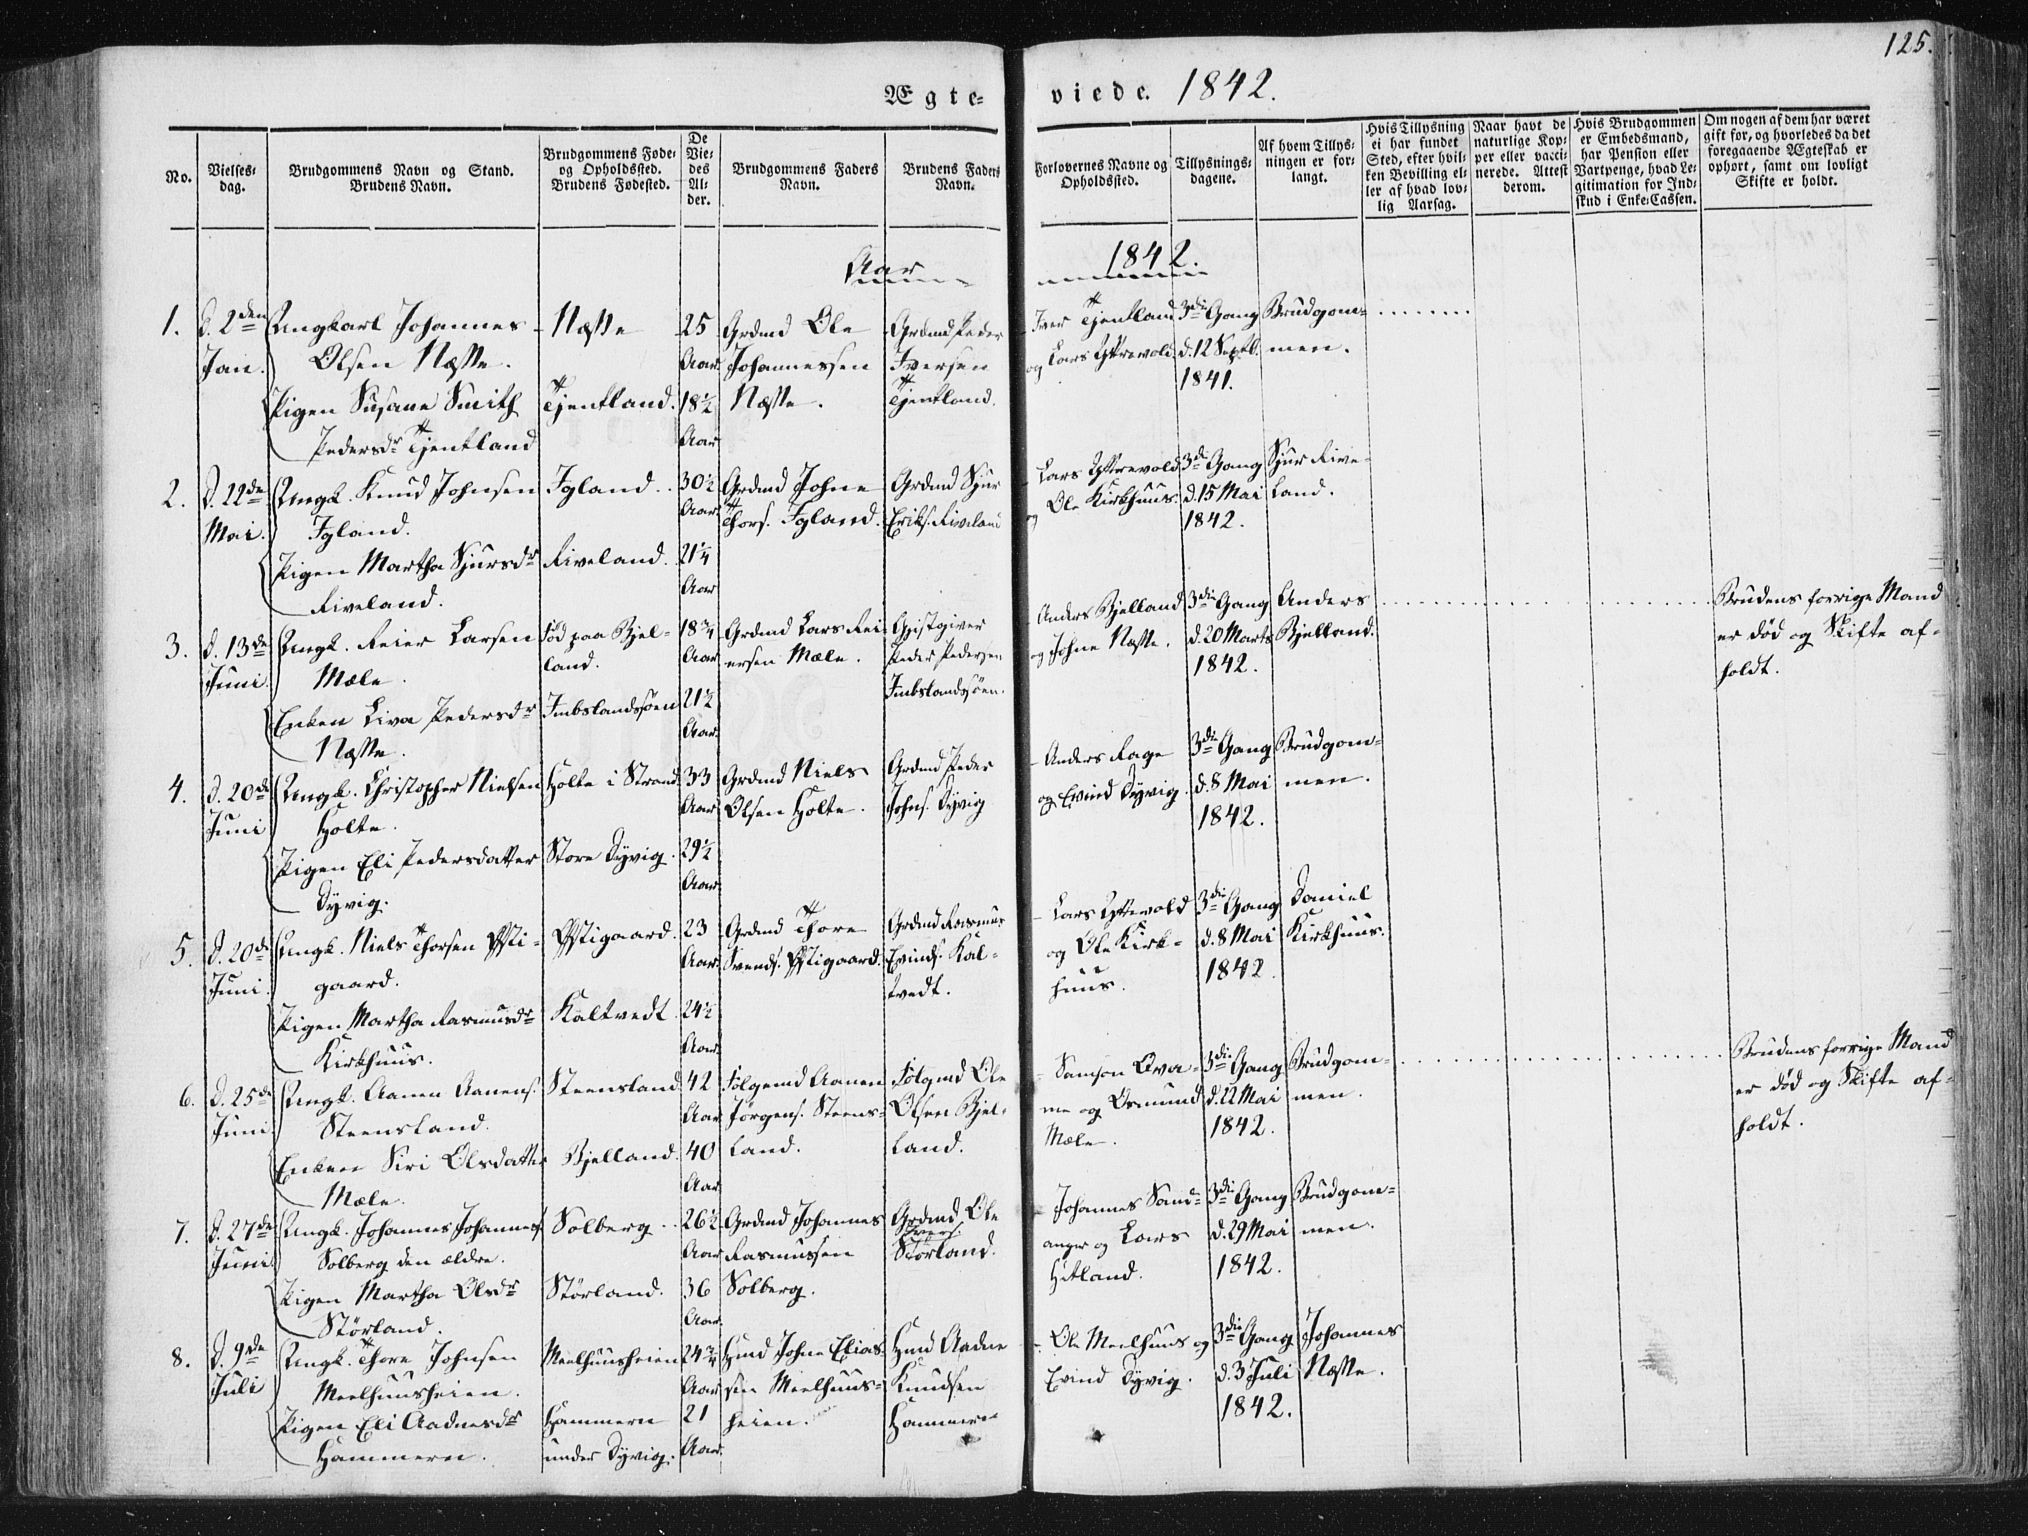 125.
Ægte-viede. 1842.
No.
Vielses-
dag.
Brudgommens Navn og Stand.
Brudens Navn.
Brudgommens Føde-
og Opholdssted.
Brudens Fødested.
De
Vie-
des
Al-
der.
Brudgommens Faders
Navn.
Brudens Faders
Navn.
Forlovernes Navne og
Opholdssted.
Tillysnings-
dagene.
Af hvem Tillys-
ningen er for-
langt.
Hvis Tillysning
ei har fundet
Sted, efter hvil-
ken Bevilling el-
ler af hvad lov-
lig Aarsag.
Naar havt de
naturlige Kop-
per eller vacci-
nerede. Attest
derom.
Hvis Brudgommen
er Embedsmand,
har Pension eller
Vartpenge, hvad Le-
gitimation for Ind-
skud i Enke-Cassen.
Om nogen af dem har været
gift før, og hvorledes da det
foregaaende Ægteskab er
ophørt, samt om lovligt
Skifte er holdt.
Aar 1842.
1.
d. 2den
Jan.
Ungkarl Johannes
Olsen Næsse.
Pigen Susane Smith
Pedersdr Tjentland
Næsse
Tjentland.
25
Aar.
18½
Aar
Grdmd Ole
Johannessen
Næsse.
Grdmd Peder
Iversen
Tjentland.
Iver Tjentland
og Lars Yttrevold.
3die Gang
d. 12 Septb.
1841.
Brudgom-
men.
2.
d. 22de
Mai.
Ungk. Knud Johnsen
Igland.
Pigen Martha Sjursdr
Riveland.
Igland.
Riveland.
30½
Aar
21¼
Aar
Grdmd Johne
Thors. Igland.
Grdmd Sjur
Eriks. Riveland
Lars Yttrevold
og Ole Kirkhuus.
3die Gang
d. 15 Mai
1842.
Sjur Rive-
land.
3.
d. 13de
Juni.
Ungk. Reier Larsen
Mæle.
Enken Siva Pedersdr
Næsse.
Fød paa Bjel-
land.
Imbslandssøen
18¾
Aar
21½
Aar.
Grdmd Lars Rei-
ersen Mæle.
Gjestgiver
Peder Pedersen
Imbslandssøen.
Anders Bjelland
og Johne Næsse.
3die Gang
d. 20 Marts
1842.
Anders
Bjelland.
Brudens forrige Mand
er død og Skifte af-
holdt.
4.
d. 20de
Juni
Ungk. Christopher Nielsen
Holte.
Pigen Eli Pedersdatter
Dyvig.
Holte i Strand.
Store Dyvig.
33
Aar
29½
Aar
Grdmd Niels
Olsen Holte.
Grdmd Peder
Johns. Dyvig
Anders Rage
og Evind Dyvig.
3die Gang
d. 8 Mai
1842.
Brudgom-
men.
5.
d. 20de
Juni.
Ungk. Niels Thorsen Østi-
gaard.
Pigen Martha Rasmusdr
Kirkhuus.
Østigaard.
Kaltvedt.
23
Aar
24½
Aar
Grdmd Thore
Svends. Østigaard.
Grdmd Rasmus
Evinds. Kal-
tvedt.
Lars Yttrevold
og Ole Kirk-
huus.
3die Gang
d. 8 Mai
1842.
Daniel
Kirkhuus.
6.
d. 25de
Juni
Ungk. Aanen Aanens.
Steensland.
Enken Siri Olsdatter
Mæle.
Steensland
Bjelland.
42
Aar
40
Aar
Følgemd Aanen
Jørgens. Steens-
land.
Følgmd Ole
Olsen Bjel-
land.
Samson Ova-
me og Osmund
Mæle.
3die Gang
d. 22 Mai
1842.
Brudgom-
men.
Brudens forrige Mand
er død og Skifte af-
holdt.
7.
d. 27de
Juni.
Ungk. Johannes Johannes.
Solberg den ældre.
Pigen Martha Olsdr
Størland.
Solberg
Størland.
26½
Aar
36
Aar
Grdmd Johannes
Rasmussen
Solberg.
Grdmd Ole
Størland.
Johannes Sand-
anger og Lars
Hetland.
3die Gang
d. 29 Mai
1842.
Brudgom-
men.
8.
d. 9de
Juli
Ungk. Thore Johnsen
Meelhuusheien.
Pigen Eli Aadnesdr
Hammern.
Meelhuusheien
Hammern
under Dyvig.
24¾
Aar
21
Aar.
Hmd Johne Elias-
sen Meelhuus-
heien.
Hmd Aadne
Knudsen
Hammern
Ole Meelhuus og
Evind Dyvig.
3die Gang
d. 3 Juli
1842.
Johannes
Næsse.